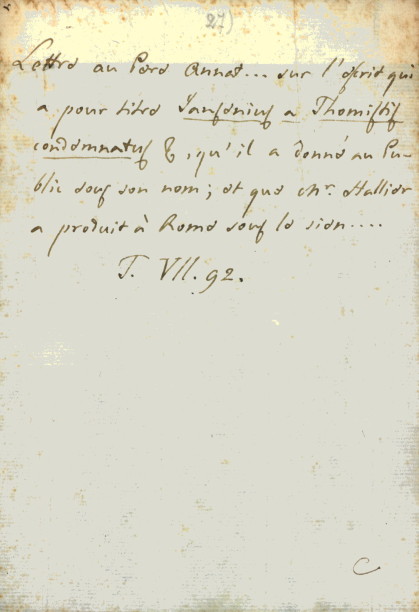 27)
Lettre au Pere Annat... sur l'ecrit qui
a pour titre Jansenius a Thomistis
condemnatus &, qu'il a donné au Pu-
blic sous son nom; et que Mr. Hallier
a produit à Rome sous le sien....
T. VII. 92.
C